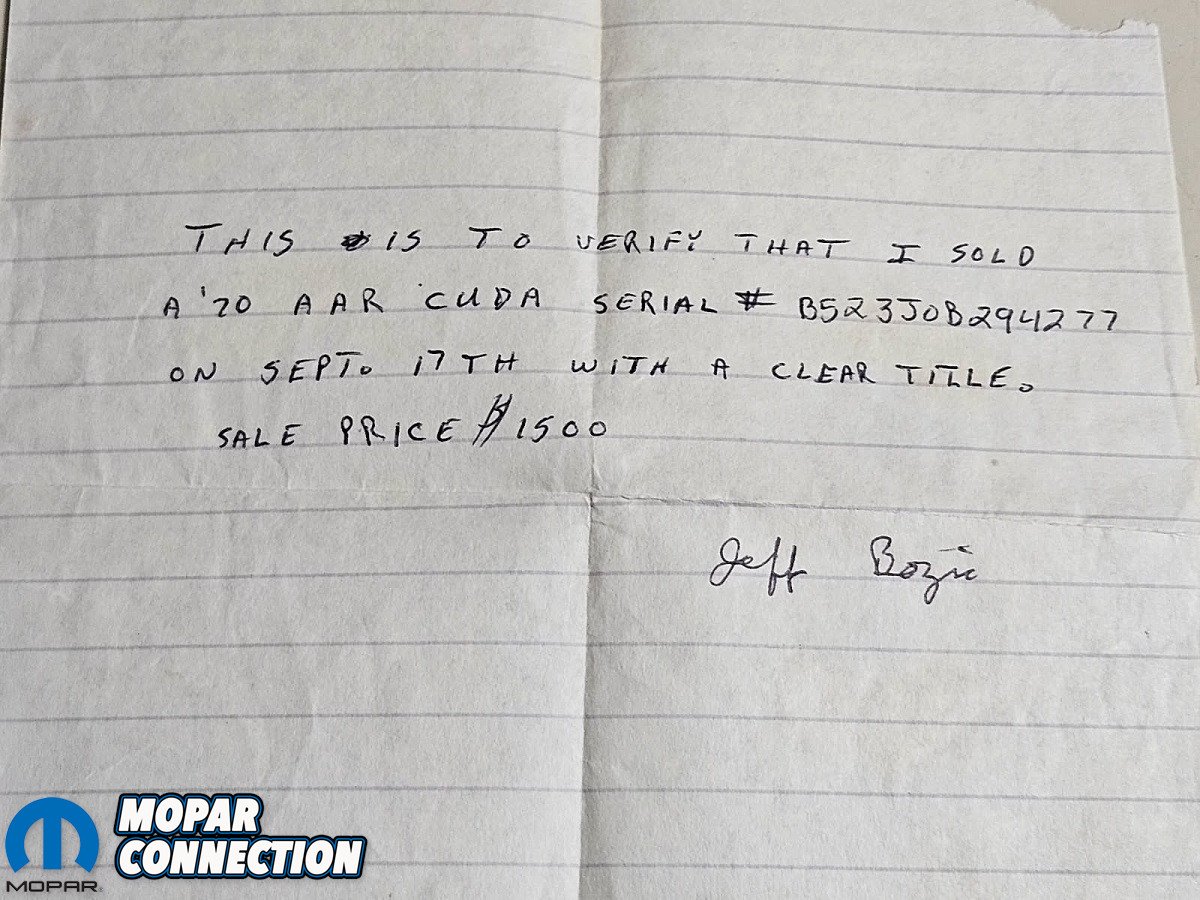 THIS IS TO VERIFY THAT I SOLD
A '70 AAR 'CUDA SERIAL # B523J0B294277
ON SEPT. 17TH WITH A CLEAR TITLE.
SALE PRICE $1500
Jeff Bozic
MOPAR
CONNECTION
MOPAR